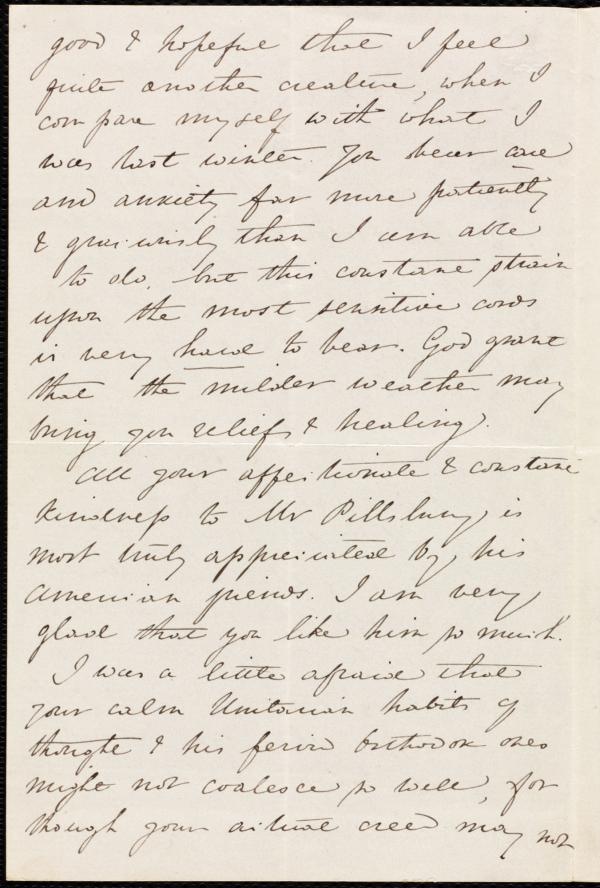 good & hopeful that I feel
quite another creature, when I
compare myself with what I
was last winter. You bear care
and anxiety far more patiently
& graciously than I am able
to do, but this constant strain
upon the most sensitive cords
is very hard to bear. God grant
that the milder weather may
bring you relief & healing.
All your affectionate & constant
kindness to Mr Pillsbury is
most truly appreciated by his
American friends. I am very
glad that you like him so much.
I was a little afraid that
your calm Unitarian habits of
thought & his fervid Orthodox ones
might not coalesce so well, for
though your actual creed may not